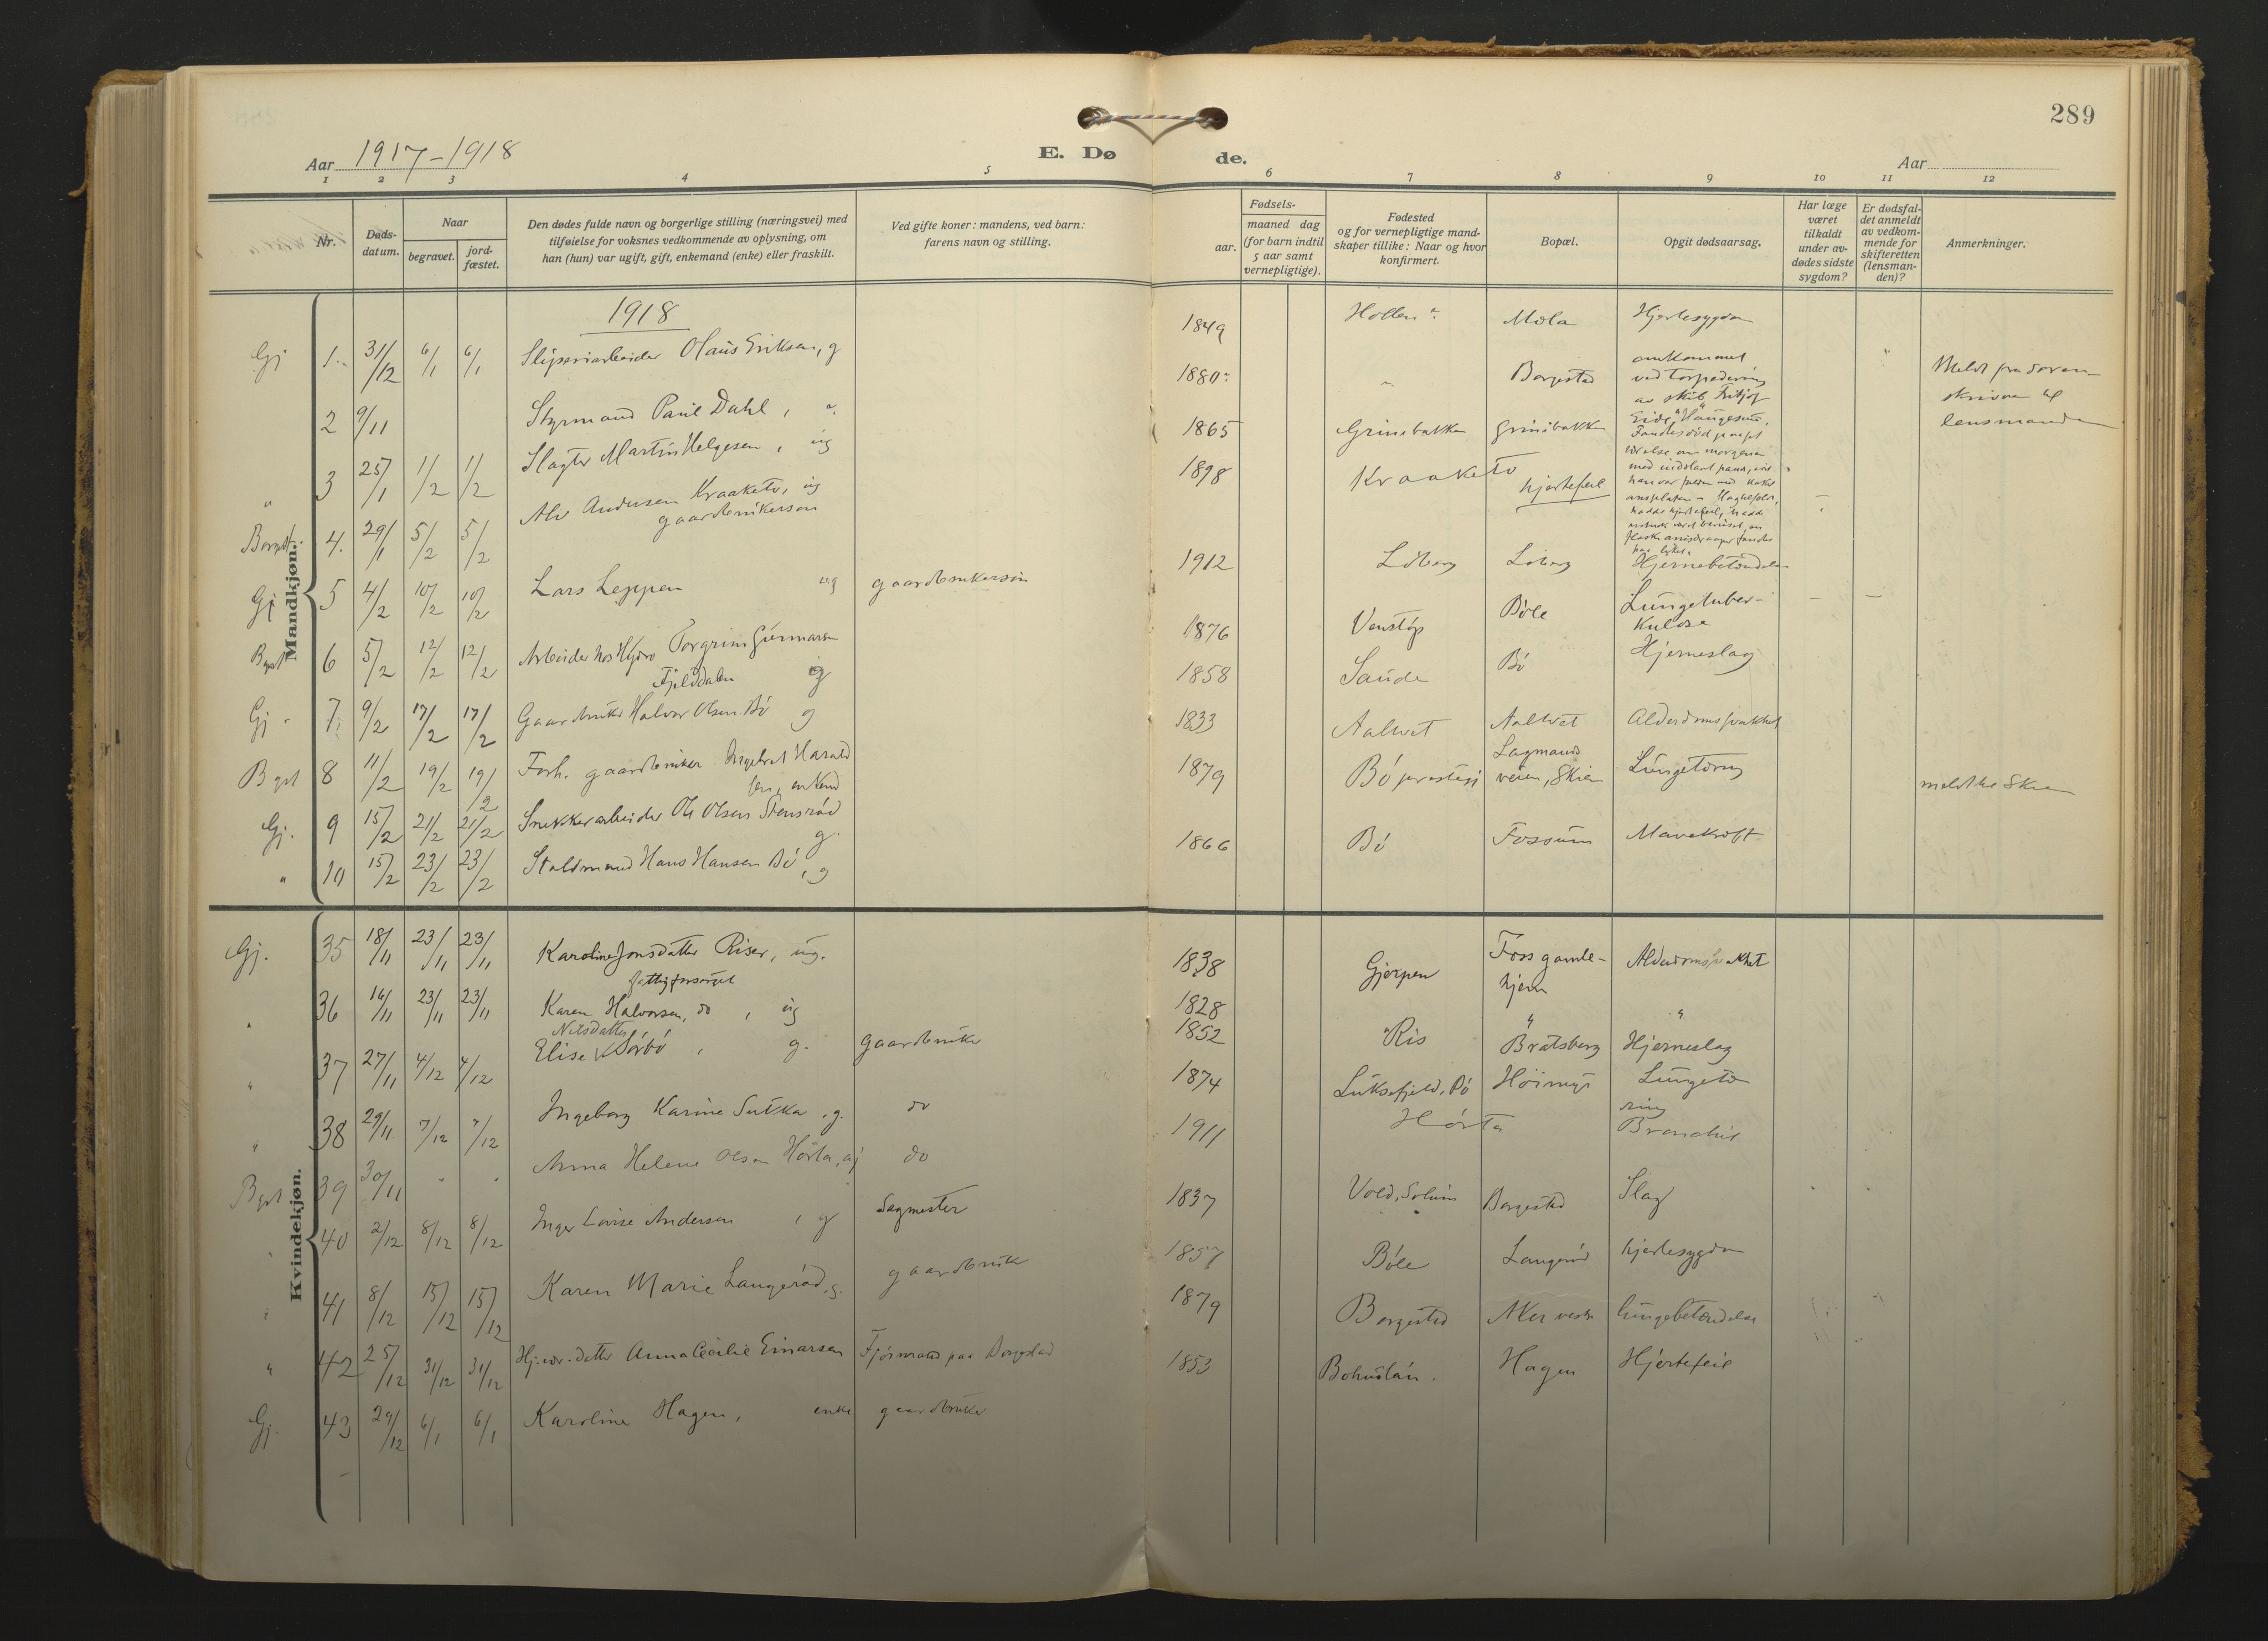 289
Aar 1917-1918
E. Dø
de.
Aar
1 2 3 4 5 6 7 8 9 10 11 12
Nr.
Døds-
datum.
Naar
begravet.
jord-
fæstet.
Den dødes fulde navn og borgerlige stilling (næringsvei) med
tilføielse for voksnes vedkommende av oplysning, om
han (hun) var ugift, gift, enkemand (enke) eller fraskilt.
Ved gifte koner: mandens, ved barn:
farens navn og stilling.
Fødsels-
aar.
maaned dag
(for barn indtil
5 aar samt
vernepligtige).
Fødested
og for vernepligtige mand-
skaper tillike: Naar og hvor
konfirmert.
Bopæl.
Opgit dødsaarsag.
Har læge
været
tilkaldt
under av-
dødes sidste
sygdom?
Er dødsfal-
det anmeldt
av vedkom-
mende for
skifteretten
(lensman-
den)?
Anmerkninger.
Mandkjøn.
1918
Gj 1. 31/12 6/1 6/1 Sliperiarbeider Olaus Eriksen, g 1849 Hollen Mæla Hjertesygdom
2 9/11 Styrmand Paul Dahl, 1880 Borgestad omkommet
ved torpedering
av skib Fritjof
Eide, Haugesund,
Meldt fra soren-
skriveren til
lensmanden
" 3 25/1 1/2 1/2 Slagter Martin Helgesen, ug 1865 Grinibakken Grinibakken
Borgest. 4. 29/1 5/2 5/2 Alv Andersen Kraaketo, ug
gaardbrukersøn 1898 Kraaketo hjertefeil
Gj 5 4/2 10/2 10/2 Lars Leppen ug gaardbrukersøn 1912 Löberg Löberg Hjernebetændelse
Bgst 6 5/2 12/2 12/2 Arbeider hos Hydro Torgrim Gunnarsen
Fjelddalen g 1876 Venstöp Böle Lungetuber-
kulose
Gj 7. 9/2 17/2 17/2 Gaardbruker Halvor Olsen Bö g 1858 Saude Bö Hjerneslag
Bgst 8 11/2 19/2 19/2 Forh. gaardbruker Ingebret Harald
sen, enkem 1833 Aaltvet Aaltvet Alderdomssvakhet
Gj. 9 15/2 21/2 21/2 Snekkerarbeider Ole Olsen Stensröd
g. 1879 Bö prestegj Lagmands
veien, Skien Lungetæring meldt til Skien
" 10 15/2 23/2 23/2 Staldmand Hans Hansen Bö, g 1866 Bö Fossum Mavekræft
Kvindekjøn.
Gj. 35 18/11 23/11 23/11 Karoline Jonsdatter Riser, ug.
fattigforsörget 1838 Gjerpen Foss gamle-
hjem Alderdomssvakhet
" 36 16/11 23/11 23/11 Karen Halvorsen, do, ug 1828 " " "
" 37 27/11 4/12 4/12 Elise Nilsdatter Sörbö, g. gaardbruker 1852 Ris Bratsberg Hjerneslag
" 38 29/11 7/12 7/12 Ingeborg Karine Sutka, g. do 1874 Luksefjeld, Bö Höimyr Lungetæ
ring
Bgst 39 30/11 " " Anna Helene Olsen Hörta, ug do 1911 Hörta Bronchit
" 40 2/12 8/12 8/12 Inger Lovise Andersen, g Sagmester 1837 Vold, Solum Borgestad Slag
" 41 8/12 15/12 15/12 Karen Marie Langeröd, g. gaardbruker 1857 Böle Langeröd hjertesygdom
" 42 25/12 31/12 31/12 Hj.vær. datter Anna Cecilie Einarsen Fjösmand paa Borgestad 1879 Borgestad Aker vestre lungebetændelse
Gj. 43 29/12 6/1 6/1 Karoline Hagen, enke gaardbruker 1853 Bohuslän. Hagen Hjertefeil